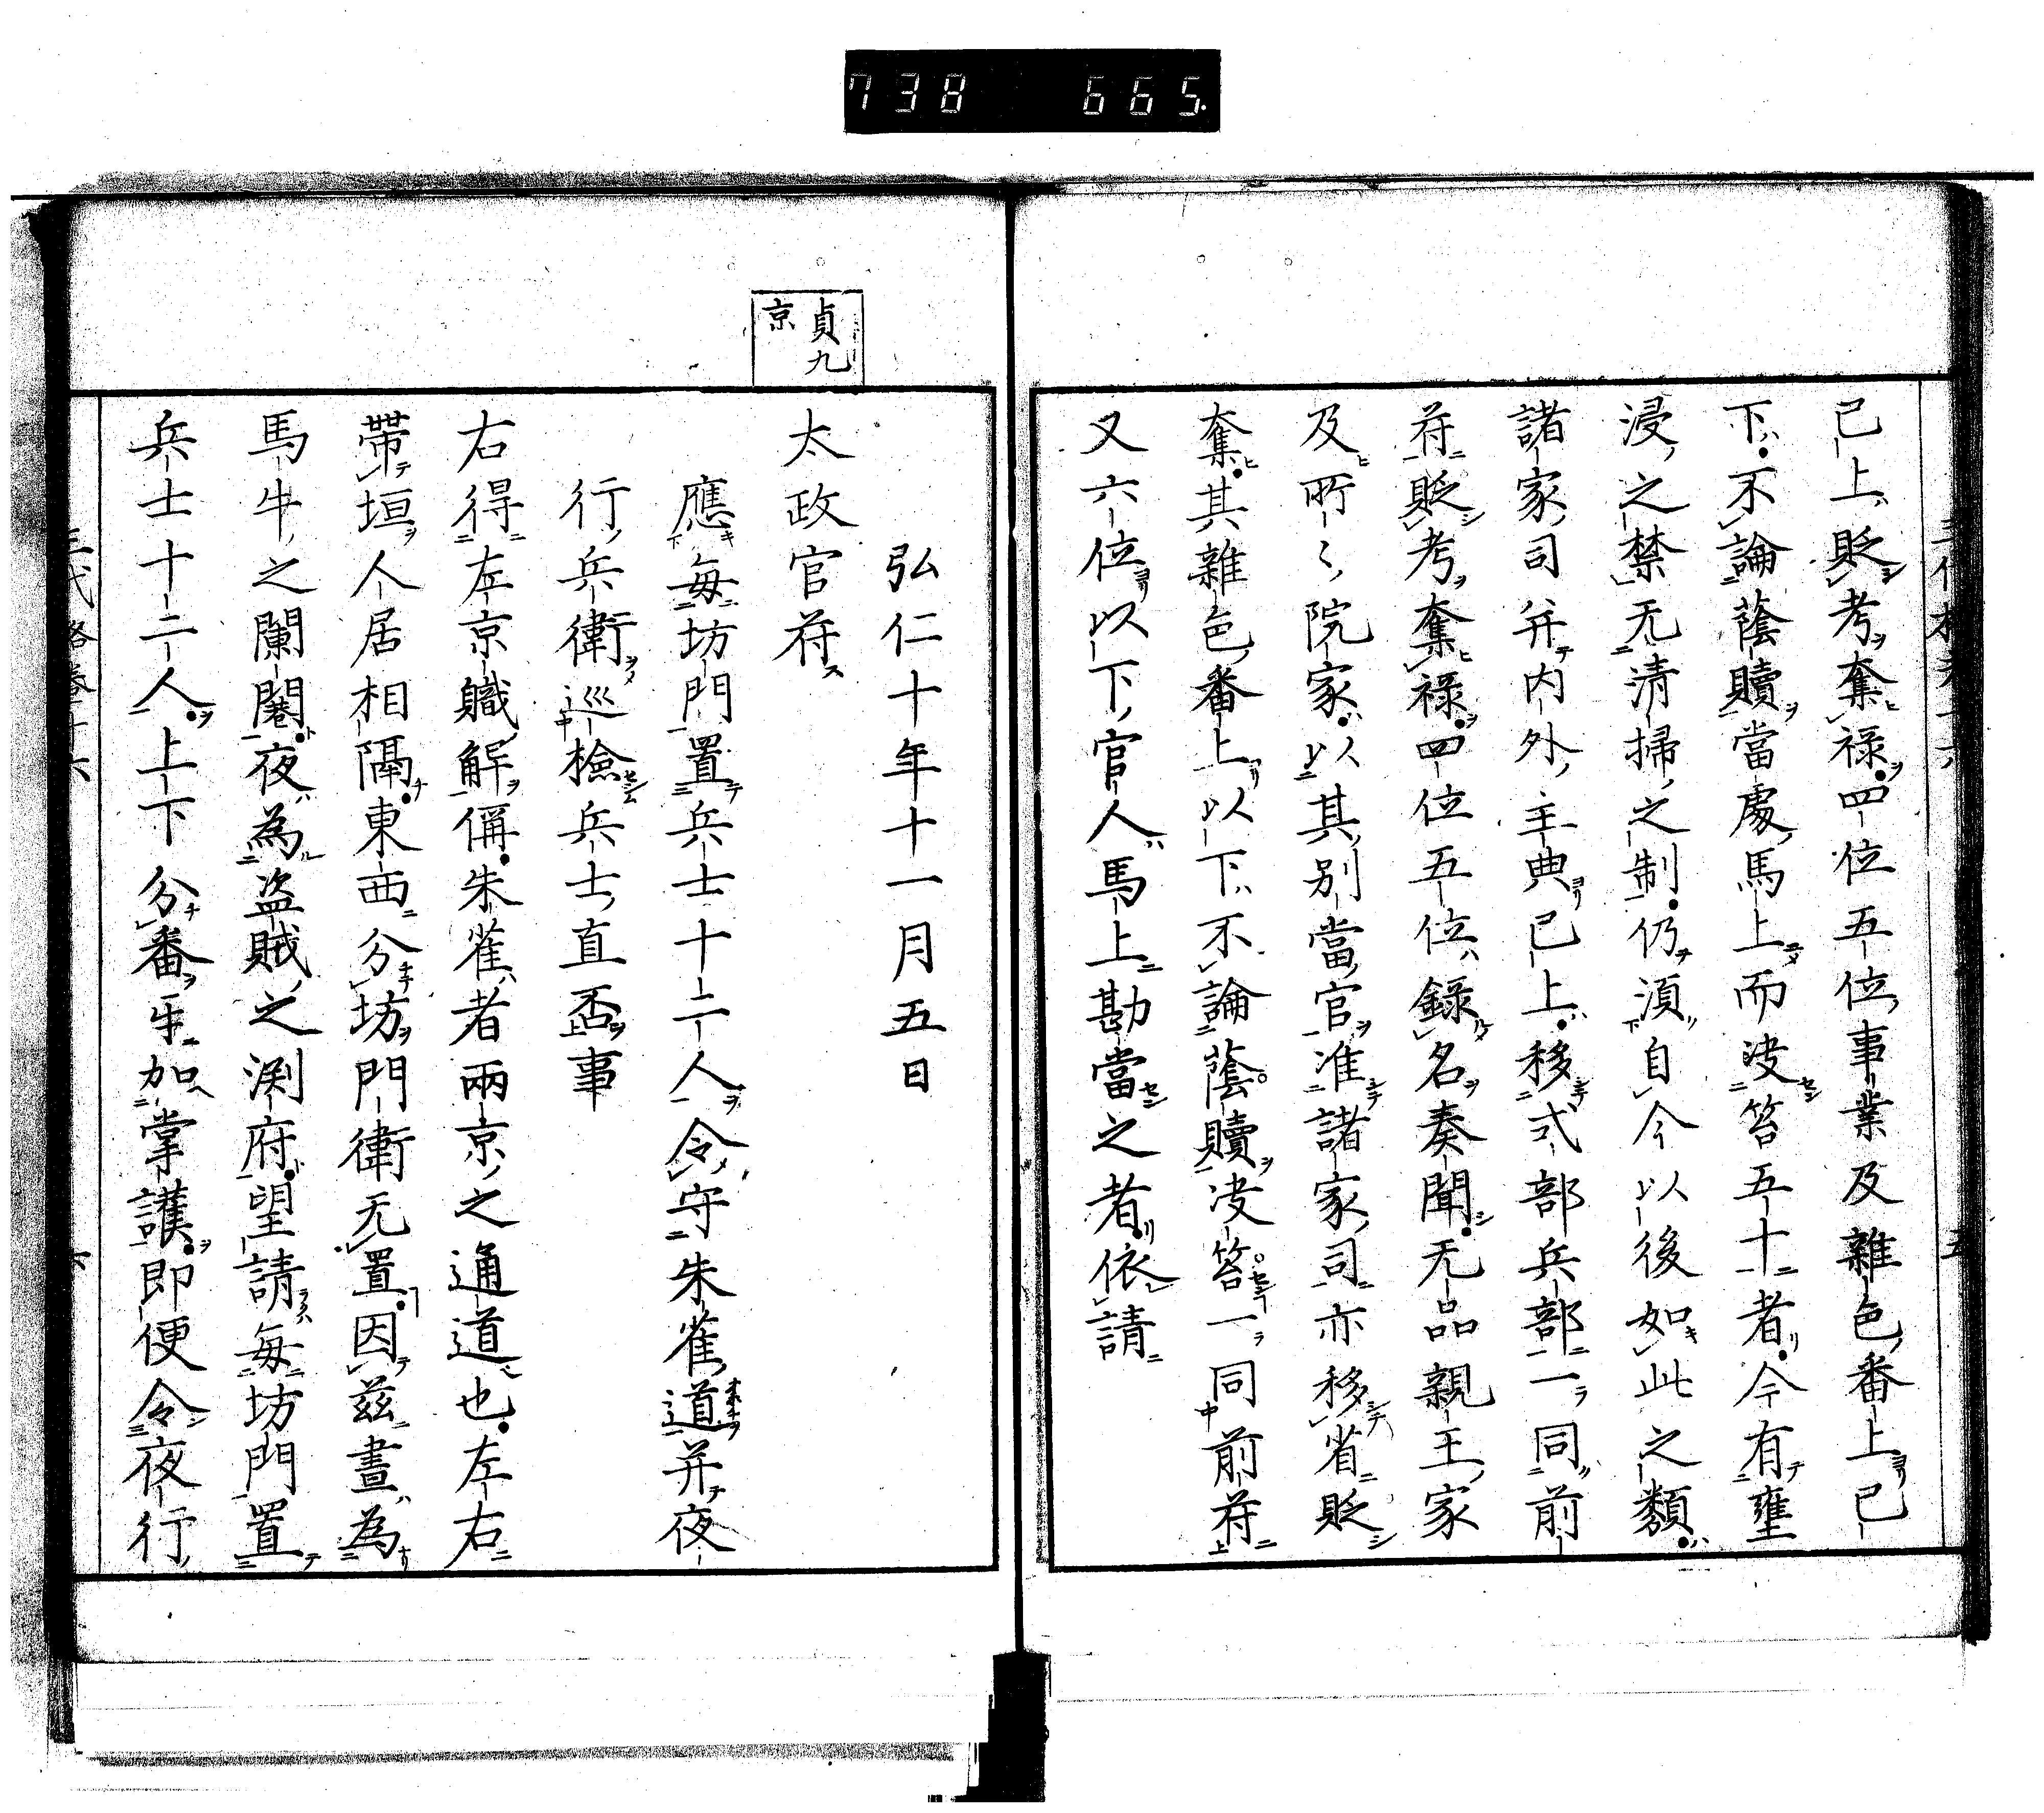 738 665.
已上貶考奪禄四位五位事業及雜色番上已
下不論蔭贖當處馬上而决笞五十者今有壅
浸之禁无清掃之制仍湏自今以後如此之類
諸家司并内外主典已上移式部兵部一同前
符貶考奪禄四位五位録名奏聞无品親王家
及所々院家以其別當官准諸家司亦移省貶
奪其雜色番上以下不論蔭贖决笞一同前符
又六位以下官人馬上勘當之者依請
弘仁十年十一月五日
貞九
京
太政官符
應毎坊門置兵士十二人令守朱雀道并夜
行兵衛巡檢兵士直否事
右得左京職解偁朱雀者兩京之通道也左右
帶垣人居相隔東西分坊門衛无置因茲晝為
馬牛之闌闠夜為盗賊之渕府望請毎坊門置
兵士十二人上下分番互加掌護即便令夜行